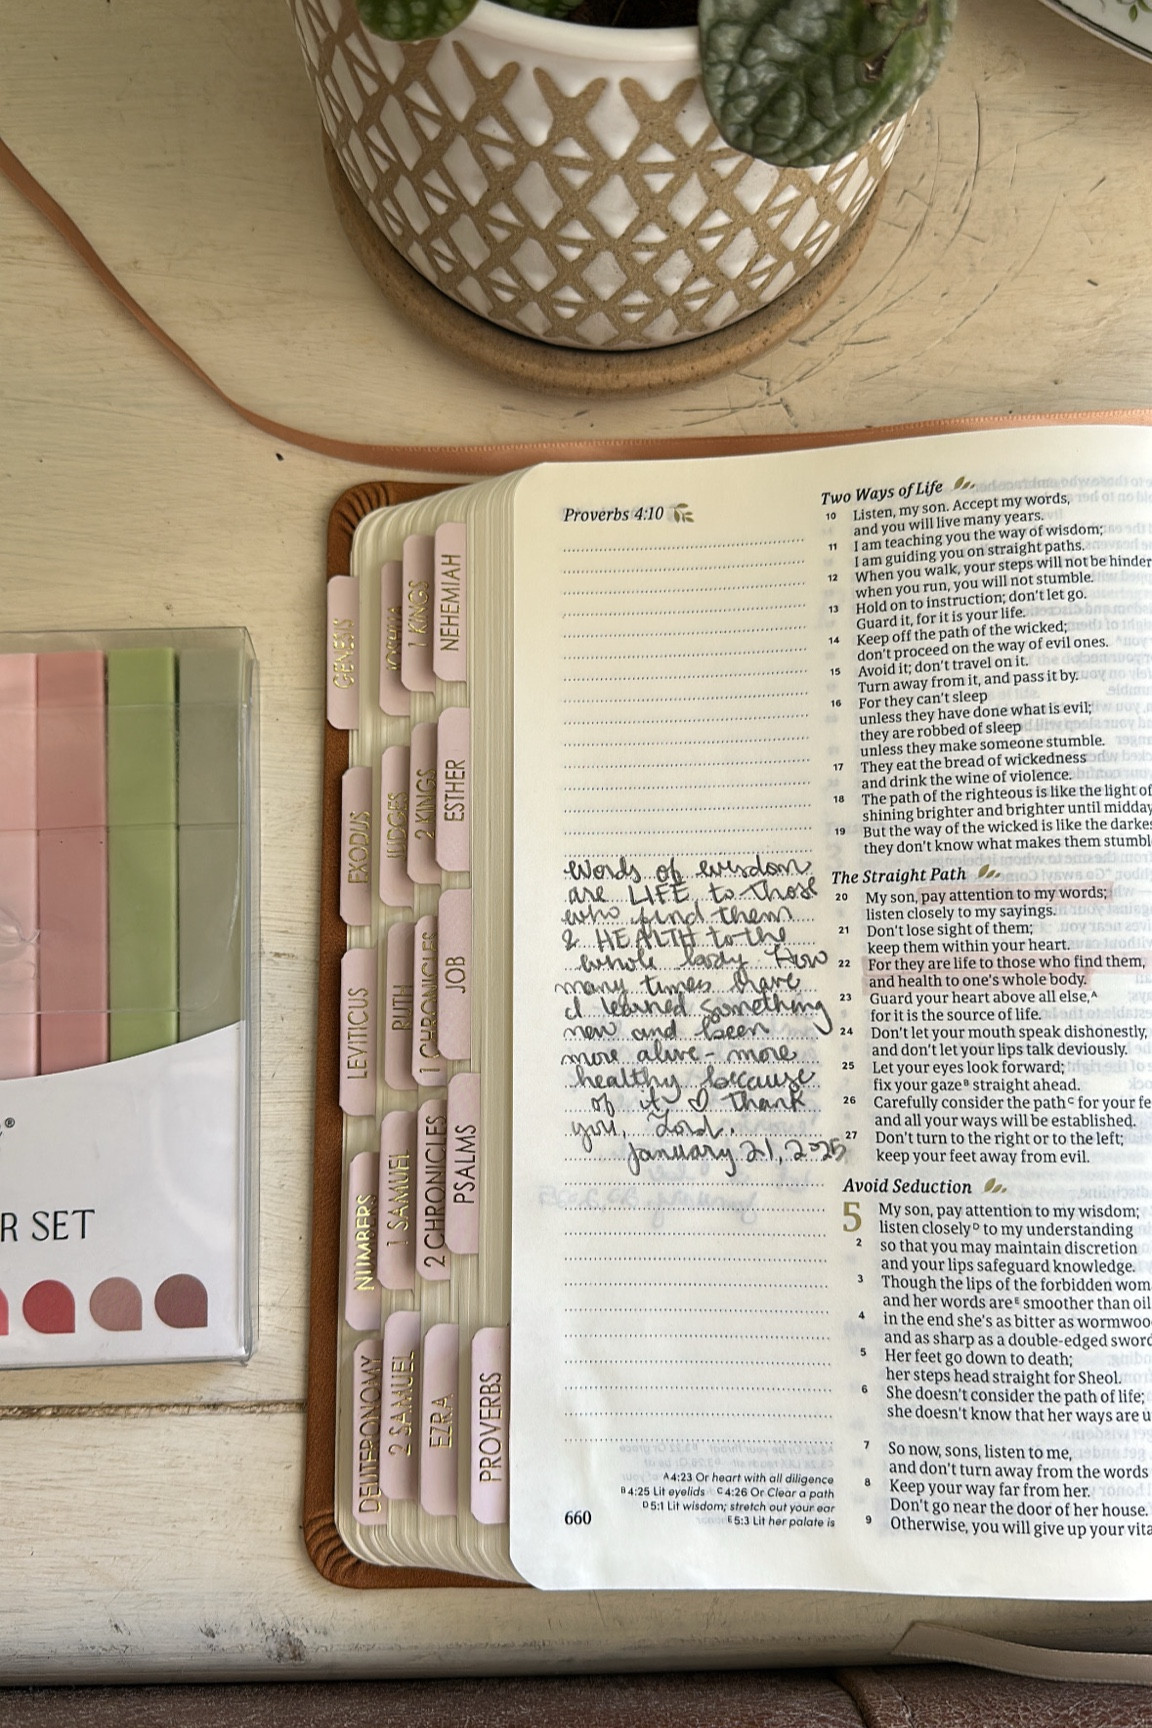 GENESIS
EXODUS
LEVITICUS
NUMBERS
DEUTERONOMY
JOSHUA
JUDGES
RUTH
1 SAMUEL
2 SAMUEL
1 KINGS
2 KINGS
1 CHRONICLES
2 CHRONICLES
EZRA
NEHEMIAH
ESTHER
JOB
PSALMS
PROVERBS
®
R SET
Proverbs 4:10
words of wisdom
are LIFE to those
who find them
& HEALTH to the
whole body. How
many times have
I learned something
new and been
more alive - more
healthy because
of it ♡ Thank
you, Lord.
January 21, 2025
A 4:23 Or heart with all diligence
B 4:25 Lit eyelids C 4:26 Or Clear a path
D 5:1 Lit wisdom; stretch out your ear
E 5:3 Lit her palate is
660
Two Ways of Life
10 Listen, my son. Accept my words,
and you will live many years.
11 I am teaching you the way of wisdom;
I am guiding you on straight paths.
12 When you walk, your steps will not be hinder
when you run, you will not stumble.
13 Hold on to instruction; don't let go.
Guard it, for it is your life.
14 Keep off the path of the wicked;
don't proceed on the way of evil ones.
15 Avoid it; don't travel on it.
Turn away from it, and pass it by.
16 For they can't sleep
unless they have done what is evil;
they are robbed of sleep
unless they make someone stumble.
17 They eat the bread of wickedness
and drink the wine of violence.
18 The path of the righteous is like the light of
shining brighter and brighter until midday
19 But the way of the wicked is like the darkes
they don't know what makes them stumbl
The Straight Path
20 My son, pay attention to my words;
listen closely to my sayings.
21 Don't lose sight of them;
keep them within your heart.
22 For they are life to those who find them,
and health to one's whole body.
23 Guard your heart above all else,A
for it is the source of life.
24 Don't let your mouth speak dishonestly,
and don't let your lips talk deviously.
25 Let your eyes look forward;
fix your gazeB straight ahead.
26 Carefully consider the pathC for your fe
and all your ways will be established.
27 Don't turn to the right or to the left;
keep your feet away from evil.
Avoid Seduction
5 My son, pay attention to my wisdom;
listen closelyD to my understanding
2 so that you may maintain discretion
and your lips safeguard knowledge.
3 Though the lips of the forbidden wom
and her words areE smoother than oil
4 in the end she's as bitter as wormwoo
and as sharp as a double-edged sword
5 Her feet go down to death;
her steps head straight for Sheol.
6 She doesn't consider the path of life;
she doesn't know that her ways are u
7 So now, sons, listen to me,
and don't turn away from the words
8 Keep your way far from her.
Don't go near the door of her house.
9 Otherwise, you will give up your vita